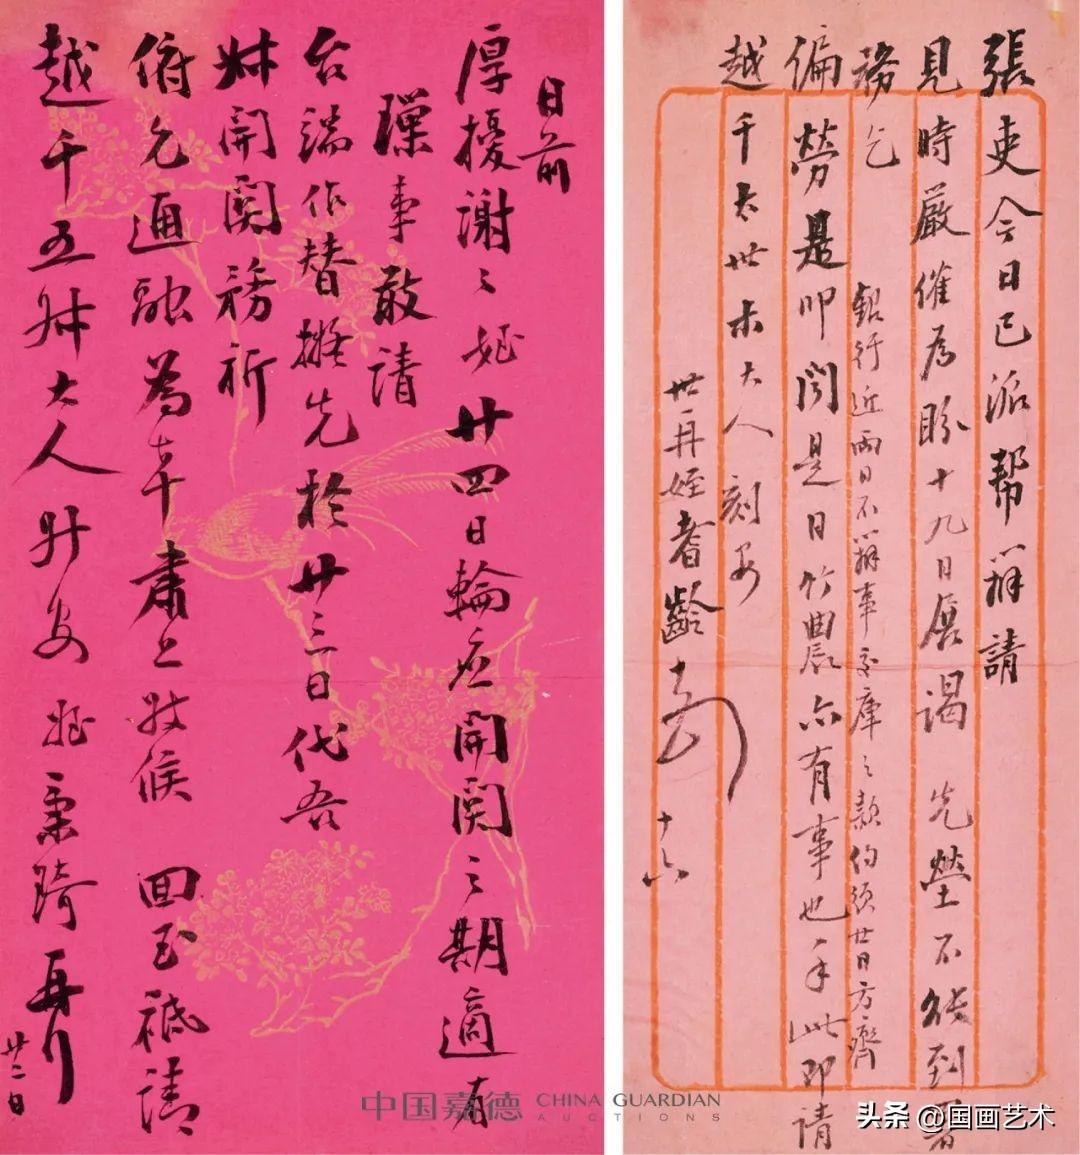 張吏今日已派幫辦請
見時嚴催為盼十九日展謁 先塋不能到署
務乞
銀行近兩日不辦事交庫之款約須廿日方齊
偏勞是叩聞是日竹農亦有事也手此即請
越千太世叔大人 刻安
世再姪耆齡 十六
日前
厚擾謝〻姪廿四日輪應開關之期適有
璅事敢請
台端作替擬先於廿三日代吾
叔開關務祈
俯允通融為幸肅上敬候 回玉祗請
越千五叔大人升安 姪秉琦再
廿二日
中国嘉德 CHINA GUARDIAN
AUCTIONS
头条@国画艺术